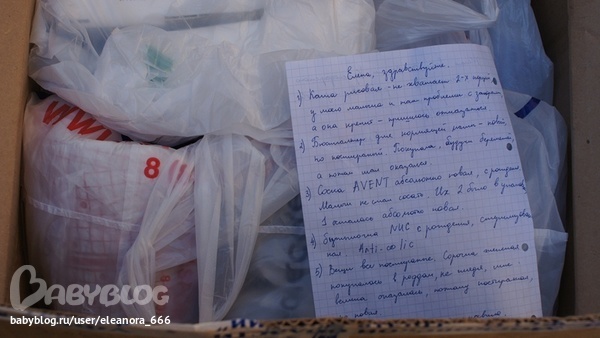 Елена, здравствуйте.
1) Каша рисовая - не хватает 2-3 ложек
у моего малыша и так проблемы с
а она крепит - пришлось отказаться
2) Бюстгальтер для кормящей мамы - новый,
но постиранный. Покупала, будучи беременной,
а копии мал оказался.
3) Соска AVENT абсолютно новая, с рождения
Малыш не стал сосать. Их 2 было в упаковке
1 осталась абсолютно новая.
4) бутылочка NUK с рождения,
ная. Anti-colic
5) Вещи все постираны. Сорочка
покупалась в роддом, не
велика оказалась, поэтому постиранная,
но новая
www
8
BABYBLOG
babyblog.ru/user/eleanora_666